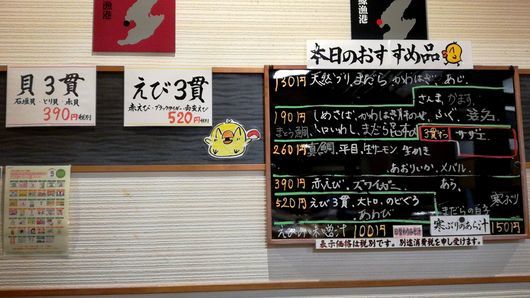 漁港
貝3貫
石垣貝・とり貝・赤貝
390円税別
えび3貫
赤えび・ブラックタイガー・甘えび
520円税別
本日のおすすめ品
130円 天然ブリ、まだら、かわはぎ、あじ、
さんま、かます、
190円 しめさば、かわはぎ肝のせ、ふぐ、
まとう鯛、トロいわし、まだら昆布〆
3貫すし サザエ
260円 真鯛、平目、生サーモン、生かき
あおりいか、メバル、
390円 赤えび、ズワイガニ、
520円 えび3貫、大トロ、のどぐろ
あわび
まだらの白子
寒ぶり
えび汁 味噌汁 100円
寒ぶりのあら汁
150円
表示価格は税別です。別途消費税を申し受けます。